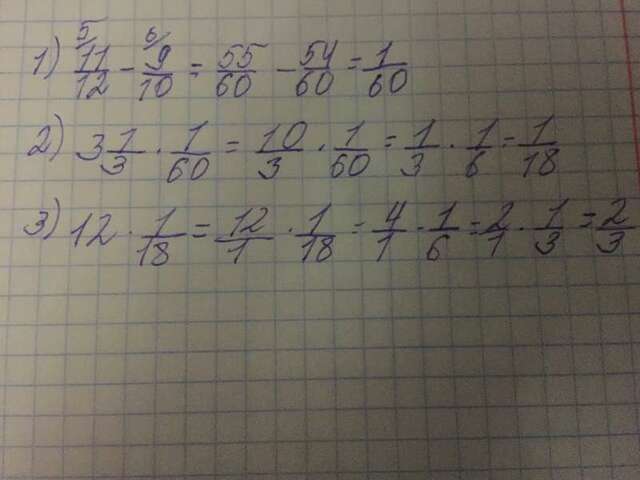 1) 5 11/12 - 6 9/10 = 55/60 - 54/60 = 1/60
2) 3 1/3 · 1/60 = 10/3 · 1/60 = 1/3 · 1/6 = 1/18
3) 12 · 1/18 = 12/1 · 1/18 = 4/1 · 1/6 = 2/1 · 1/3 = 2/3